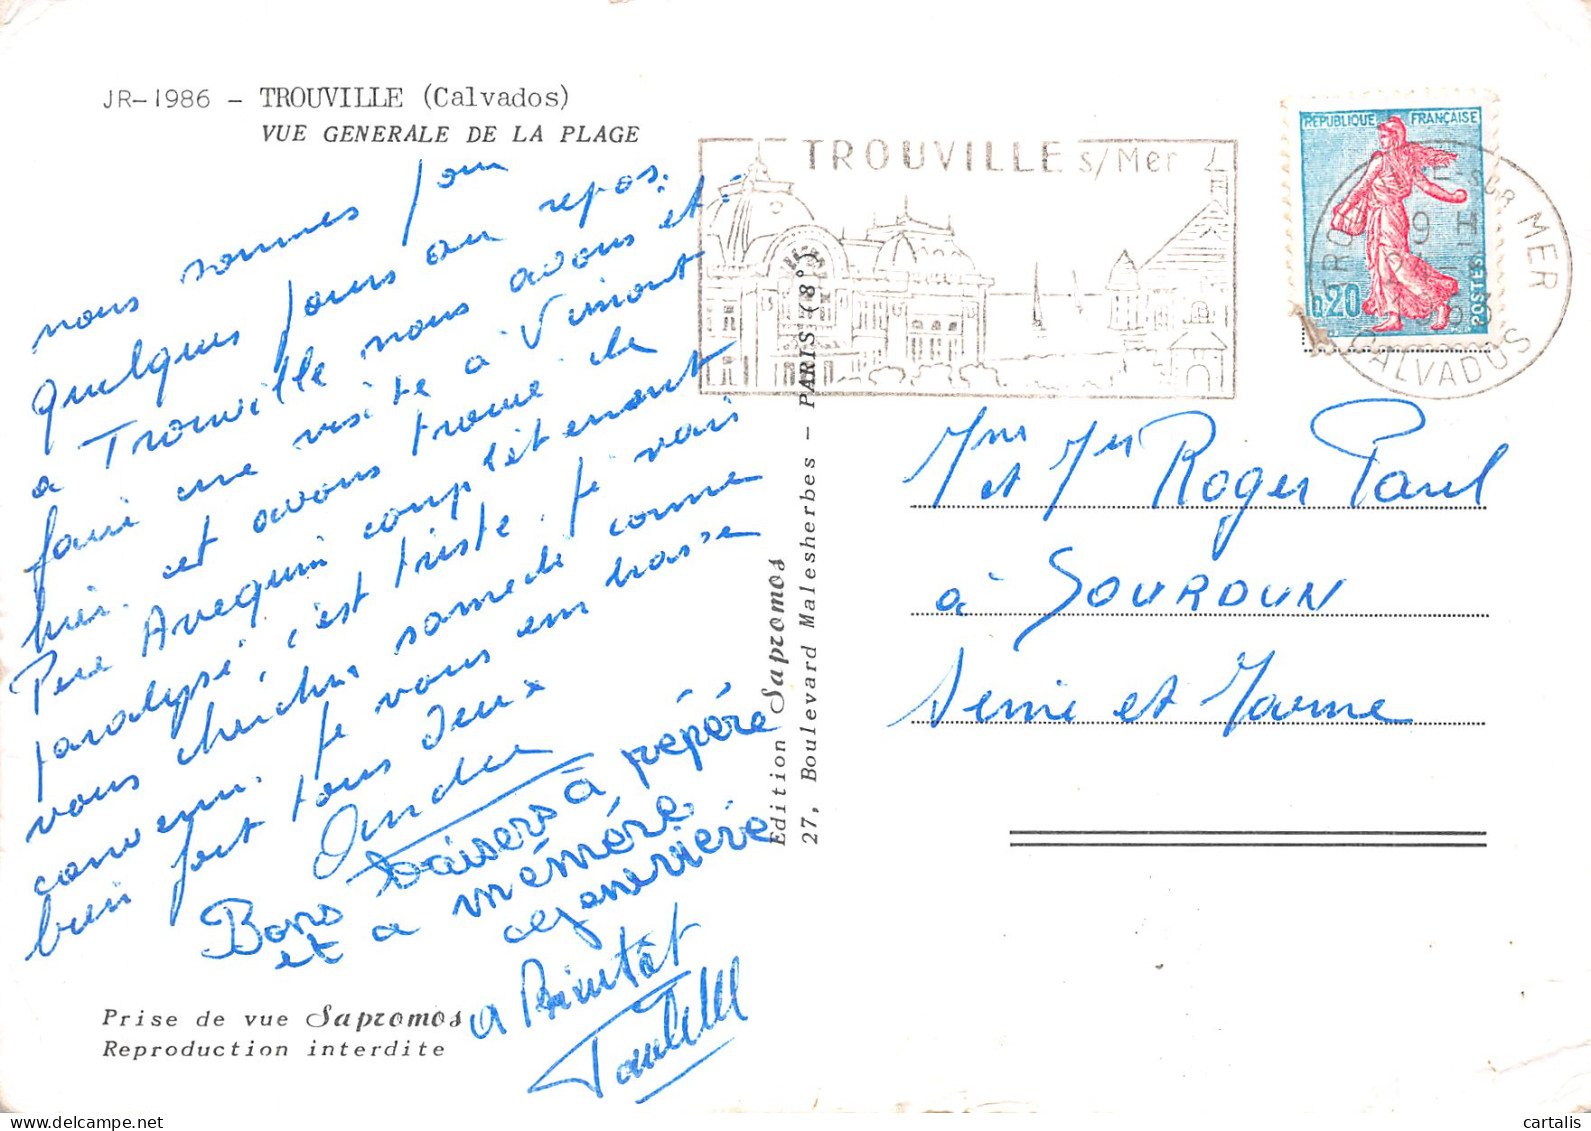 JR-1986 - TROUVILLE (Calvados)
VUE GENERALE DE LA PLAGE
nous sommes pour
quelques jours au repos
a Trouville nous avons été
faire une visite à Vimont
hier. et avons trouvé le
Pere Avequin complètement
paralysé, c'est triste. Je vais
vous chercher samedi comme
convenu. Je vous embrasse
bien fort tous deux
Andrée
Bons baisers à pépére
et a mémére
Genevieve
a Bientôt
Prise de vue Sapromos
Reproduction interdite
Edition Sapromos
27, Boulevard Malesherbes - PARIS (8°)
TROUVILLE s/Mer
REPUBLIQUE FRANÇAISE
0,20
POSTES
CALVADOS
Mme et Mr Roger Paul
à SOURDUN
Seine et Marne
cartalis
www.delcampe.net